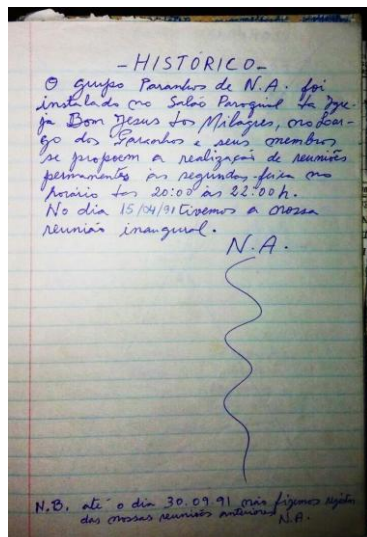 - HISTÓRICO -
O grupo Paranhos de N.A. foi
instalado no Salão Paroquial da Igre-
ja Bom Jesus dos Milagres, no Lar-
go dos Paranhos e seus membros
se propoem a realização de reuniões
permanentes às segundas-feira no
horário das 20:00 às 22:00h.
No dia 15/04/91 tivemos a nossa
reunião inaugural.
N.A.
N.B. até o dia 30.09.91 não fizemos
das nossas reuniões anteriores N.A.